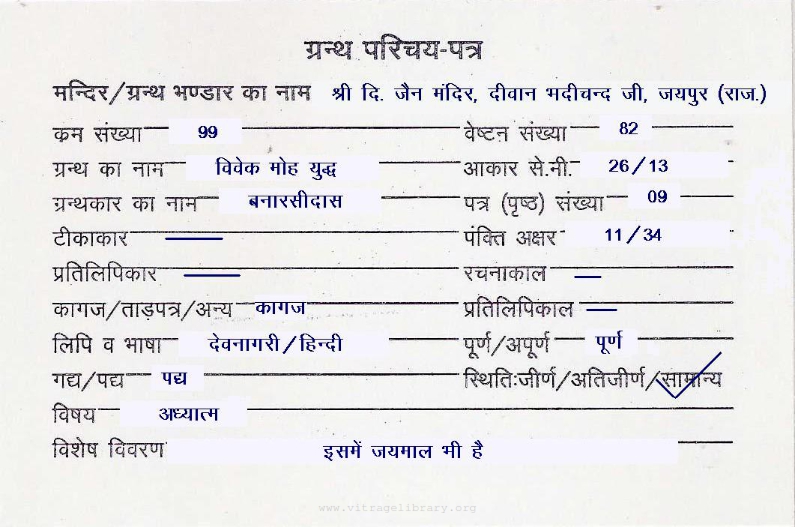 ग्रन्थ परिचय-पत्र
मन्दिर/ग्रन्थ भण्डार का नाम श्री दि. जैन मंदिर, दीवान भदीचन्द जी, जयपुर (राज.)
क्रम संख्या 99 वेष्टन संख्या 82
ग्रन्थ का नाम विवेक मोह युद्ध आकार से.मी. 26/13
ग्रन्थकार का नाम बनारसीदास पत्र (पृष्ठ) संख्या 09
टीकाकार पंक्ति अक्षर 11/34
प्रतिलिपिकार रचनाकाल
कागज/ताड़पत्र/अन्य कागज प्रतिलिपिकाल
लिपि व भाषा देवनागरी/हिन्दी पूर्ण/अपूर्ण पूर्ण
गद्य/पद्य पद्य स्थितिःजीर्ण/अतिजीर्ण/सामान्य
विषय अध्यात्म
विशेष विवरण इसमें जयमाल भी है
www.vitragelibrary.org